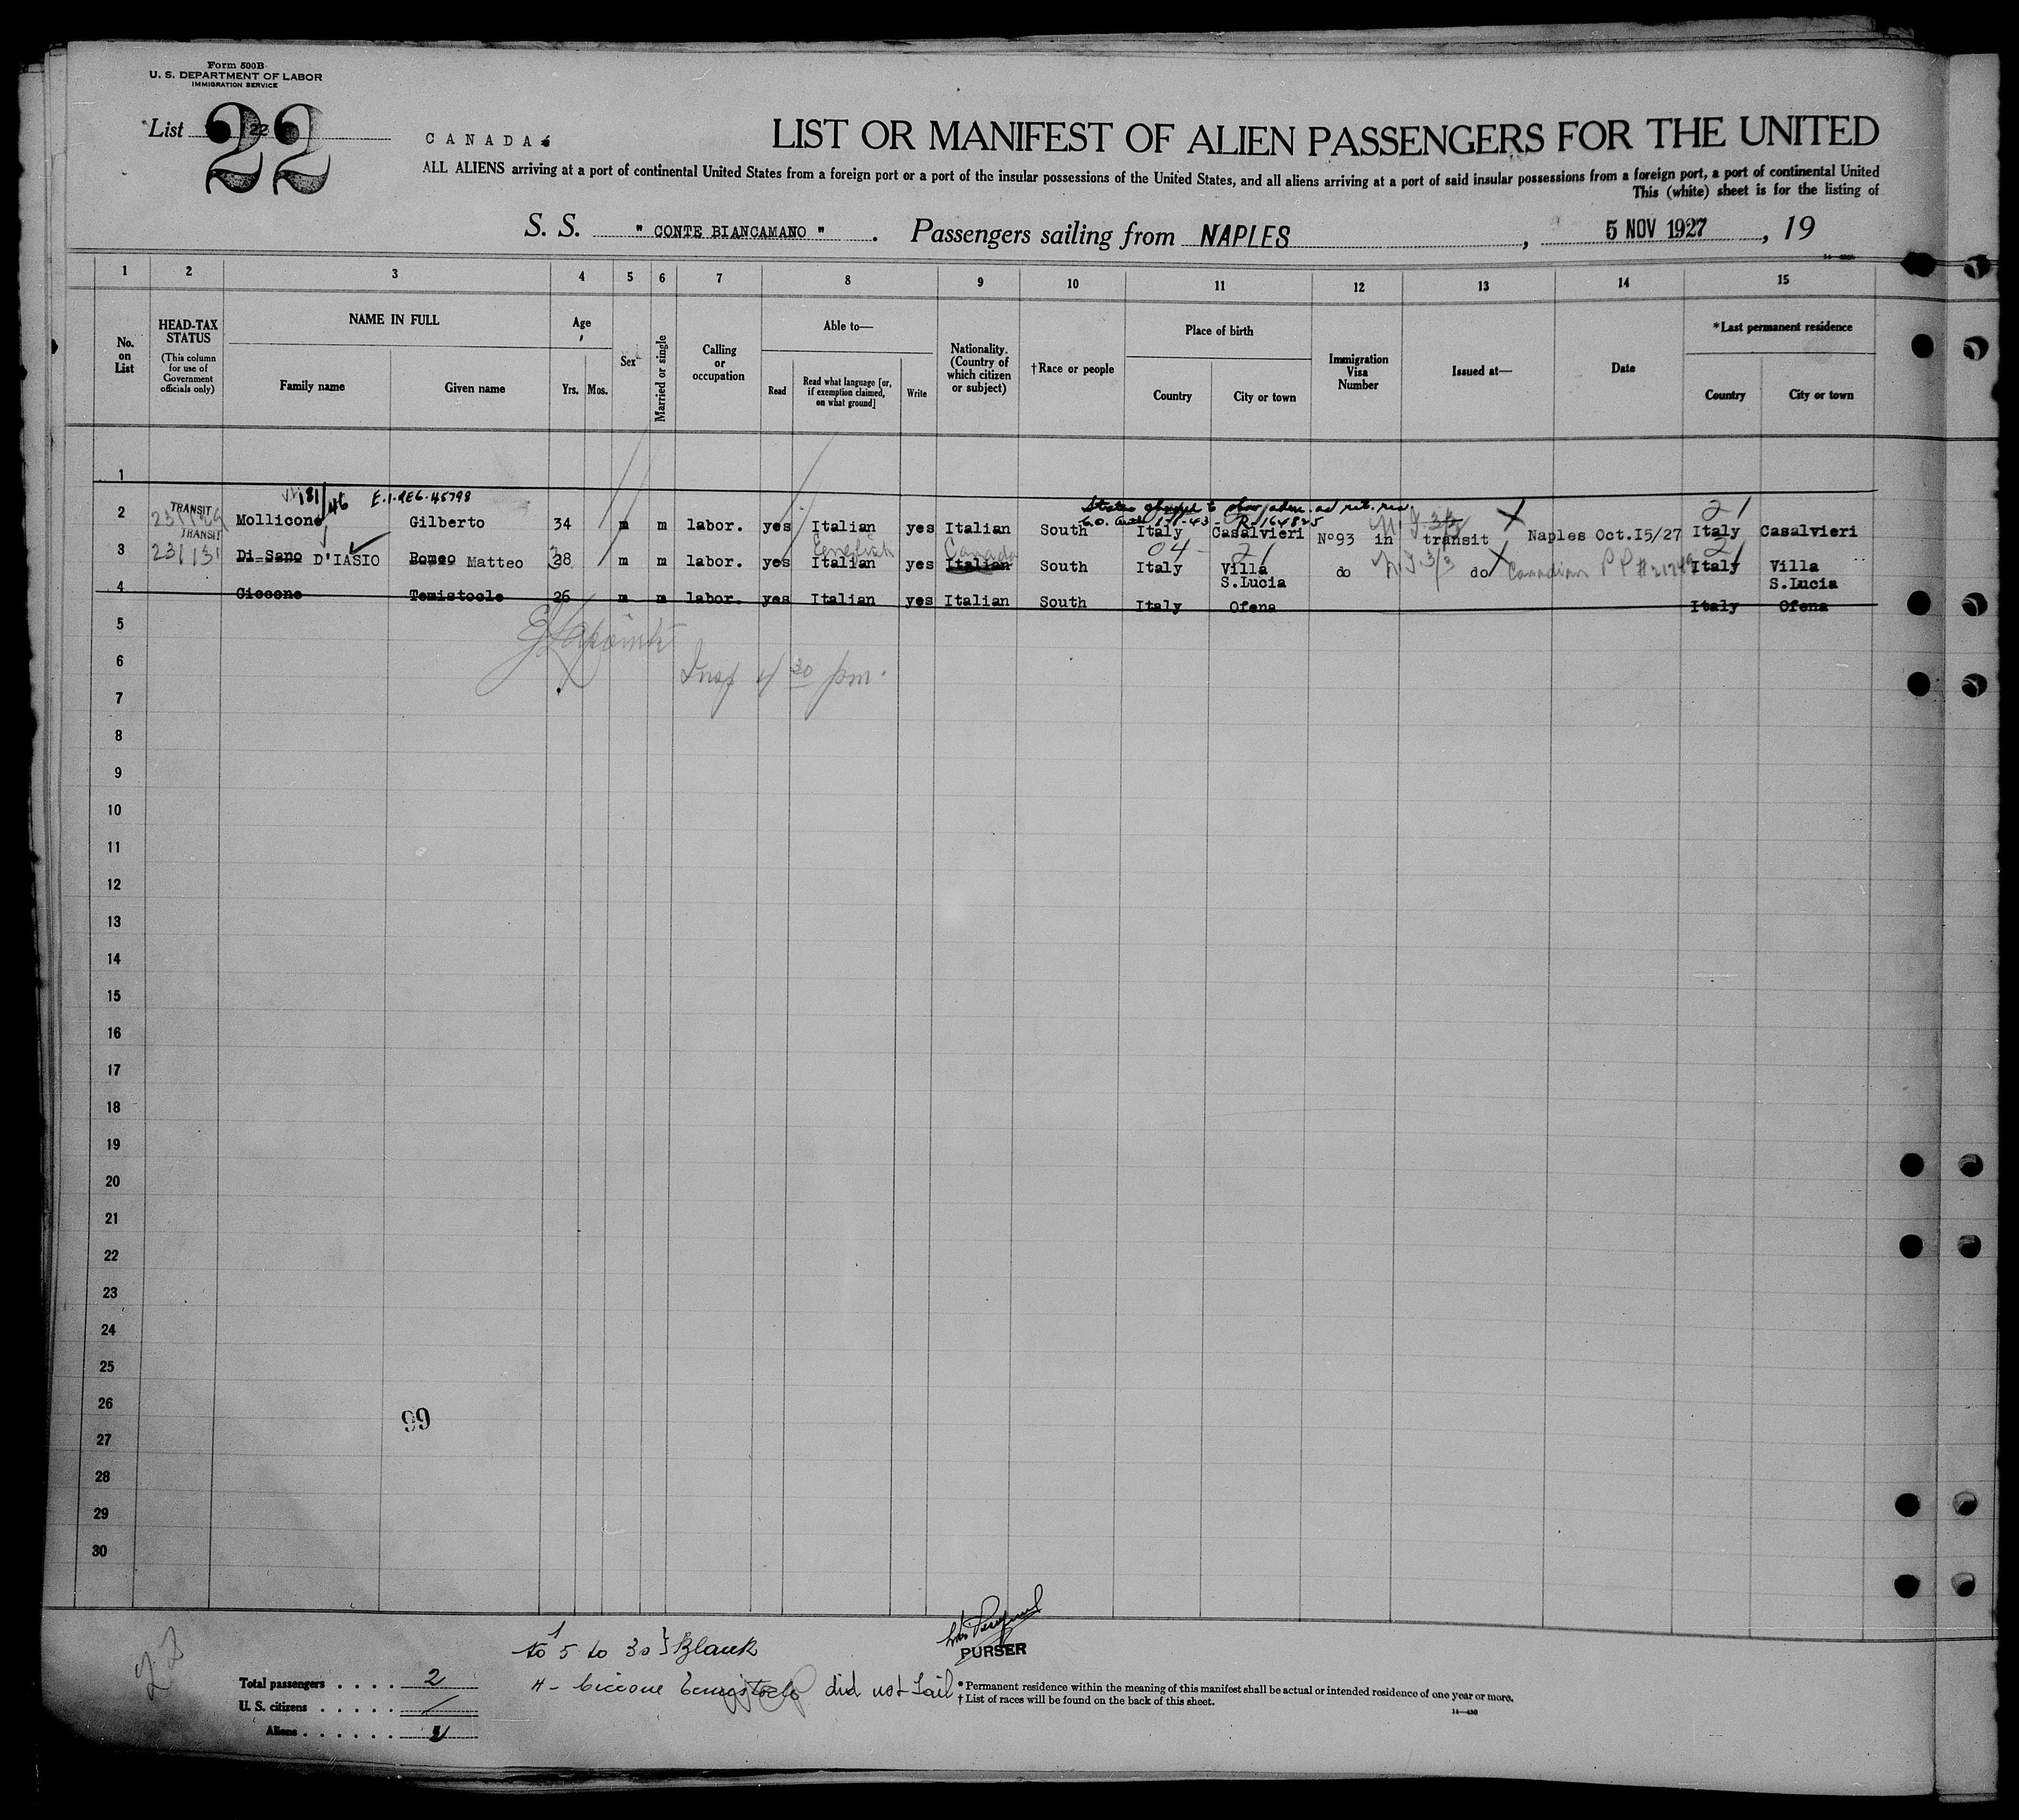 Form 500B
U. S. DEPARTMENT OF LABOR
IMMIGRATION SERVICE
List 22
22
CANADA
LIST OR MANIFEST OF ALIEN PASSENGERS FOR THE UNITED
ALL ALIENS arriving at a port of continental United States from a foreign port or a port of the insular possessions of the United States, and all aliens arriving at a port of said insular possessions from a foreign port, a port of continental United
This (white) sheet is for the listing of
S. S. " CONTE BIANCAMANO " . Passengers sailing from NAPLES , 5 NOV 1927 , 19
1 2 3 4 5 6 7 8 9 10 11 12 13 14 15
No. on List
HEAD-TAX STATUS (This column for use of Government officials only)
NAME IN FULL
Family name
Given name
Age
Yrs. Mos.
Sex
Married or single
Calling or occupation
Able to—
Read
Read what language [or, if exemption claimed, on what ground]
Write
Nationality. (Country of which citizen or subject)
†Race or people
Place of birth
Country
City or town
Immigration Visa Number
Issued at—
Date
*Last permanent residence
Country
City or town
1
181/46 E.I.
2 TRANSIT Mollicone Gilberto 34 m m labor. yes Italian yes Italian South Italy Casalvieri Nº93 in transit Naples Oct.I5/27 Italy Casalvieri
3 TRANSIT Di Sano D'IASIO Romeo Matteo 28 m m labor. yes Italian English yes Italian Canada South Italy Villa S.Lucia do do Canadian PP Italy Villa S.Lucia
4 Ciccone Temistocle 26 m m labor. yes Italian yes Italian South Italy Ofena Italy Ofena
5
6
Insp 4 30 pm.
7
8
9
10
11
12
13
14
15
16
17
18
19
20
21
22
23
24
25
26
99
27
28
29
30
22
1 to 5 to 30 } Blank
PURSER
Total passengers . . . . 2
4 - Ciccone Temistocle did not sail
U. S. citizens . . . . . /
Aliens . . . . . . 2
*Permanent residence within the meaning of this manifest shall be actual or intended residence of one year or more.
†List of races will be found on the back of this sheet.
14—430